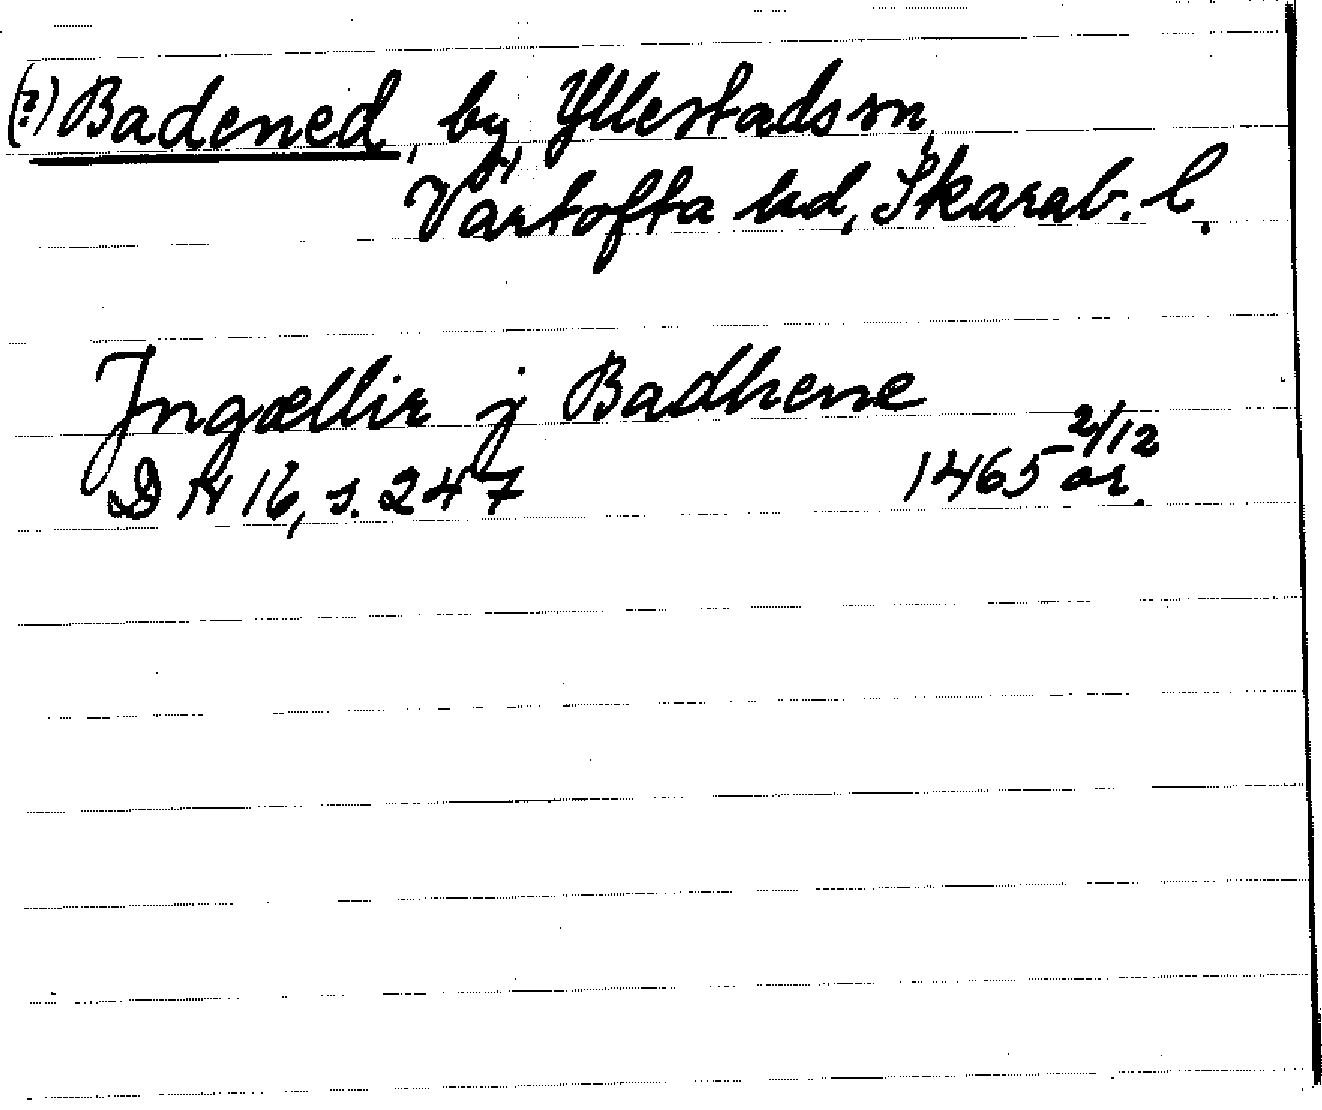 (?) Badened, by, Yllestads sn,
Vartofta hd, Skarab. l.
Ingællir j Badhene
DN 16, s. 247 1465 2/12 or.